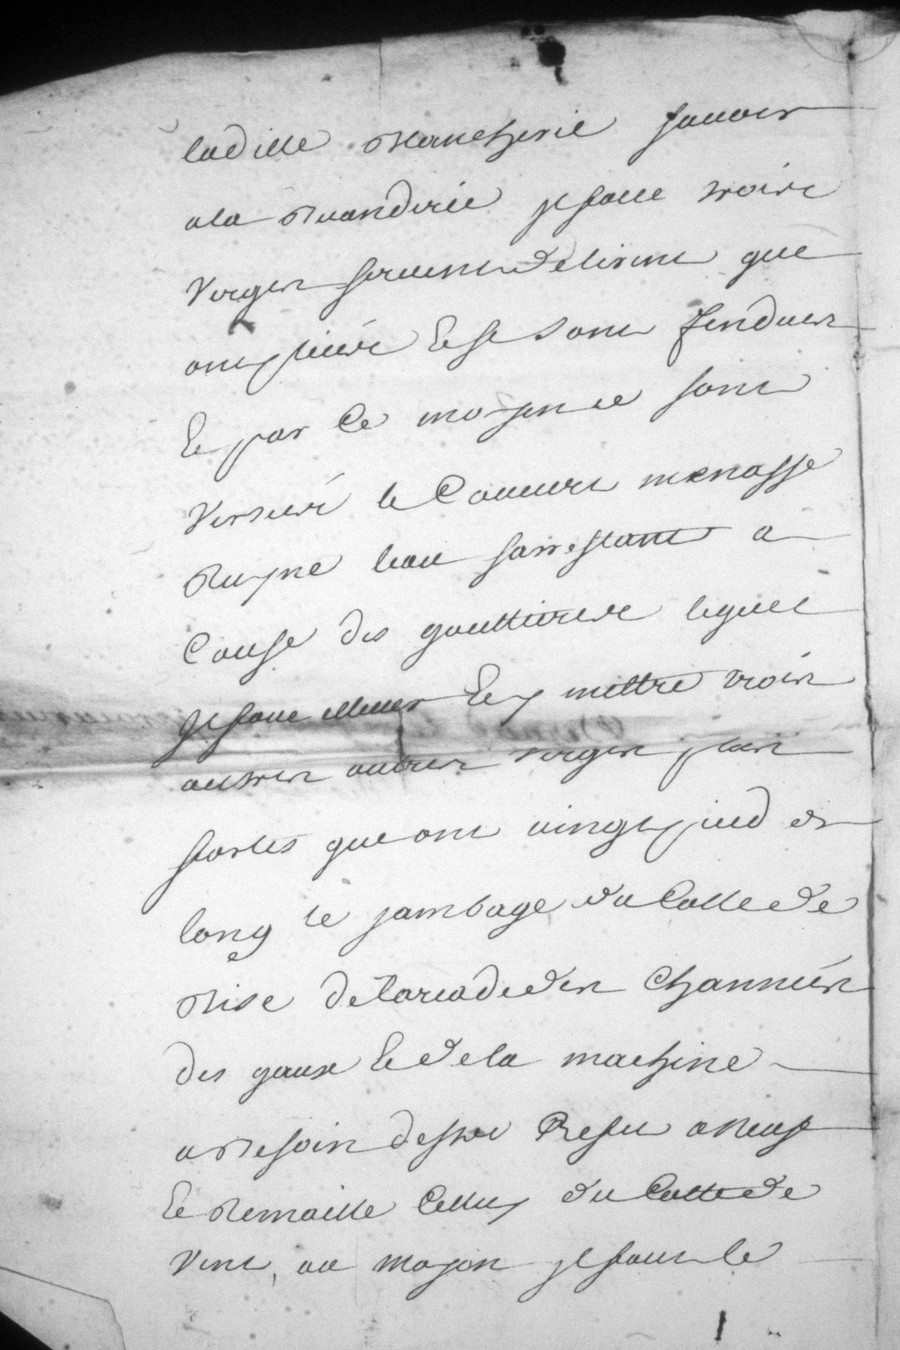 ladille blancherie sauoir
ala buanderie il faut trois
verges seruent de lirne que
ont pieds et se sont fendues
et par ce moyen ce sont
versées le couuert menasse
Ruyne leau sarrestant a
Cause des gouttieres lequel
il faut et y mettre trois
autres autres verges plus
fortes que ont vingt pied de
long le jambage du Costé de
bise de larcade des Channiers
des gaux et de la machine
a besoin destre Refait a neuf
et remaille Celluy du Costé de
vent, au moyen il faut le